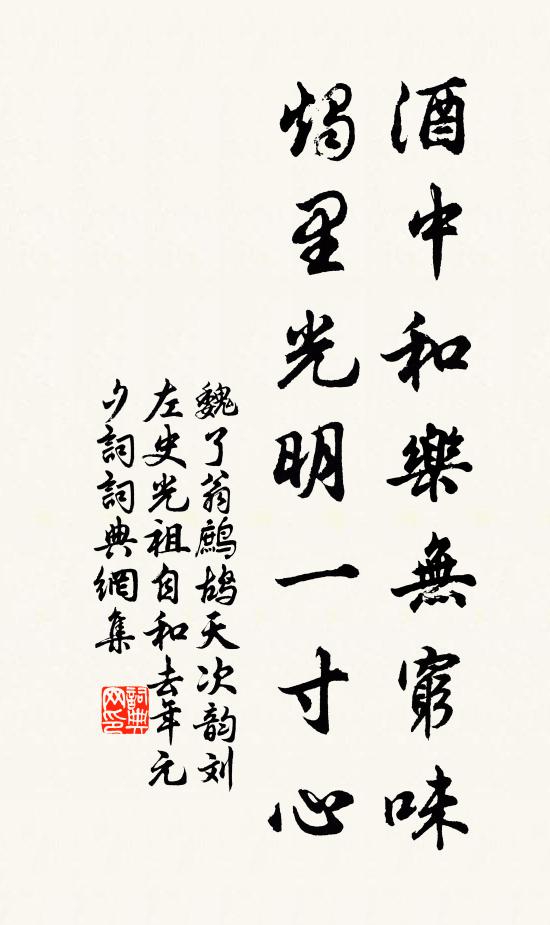 酒中和樂無窮味
燭里光明一寸心
魏了翁鷓鴣天次韵刘
左史光祖自和去年元
夕詞詞典網集
詞典网印